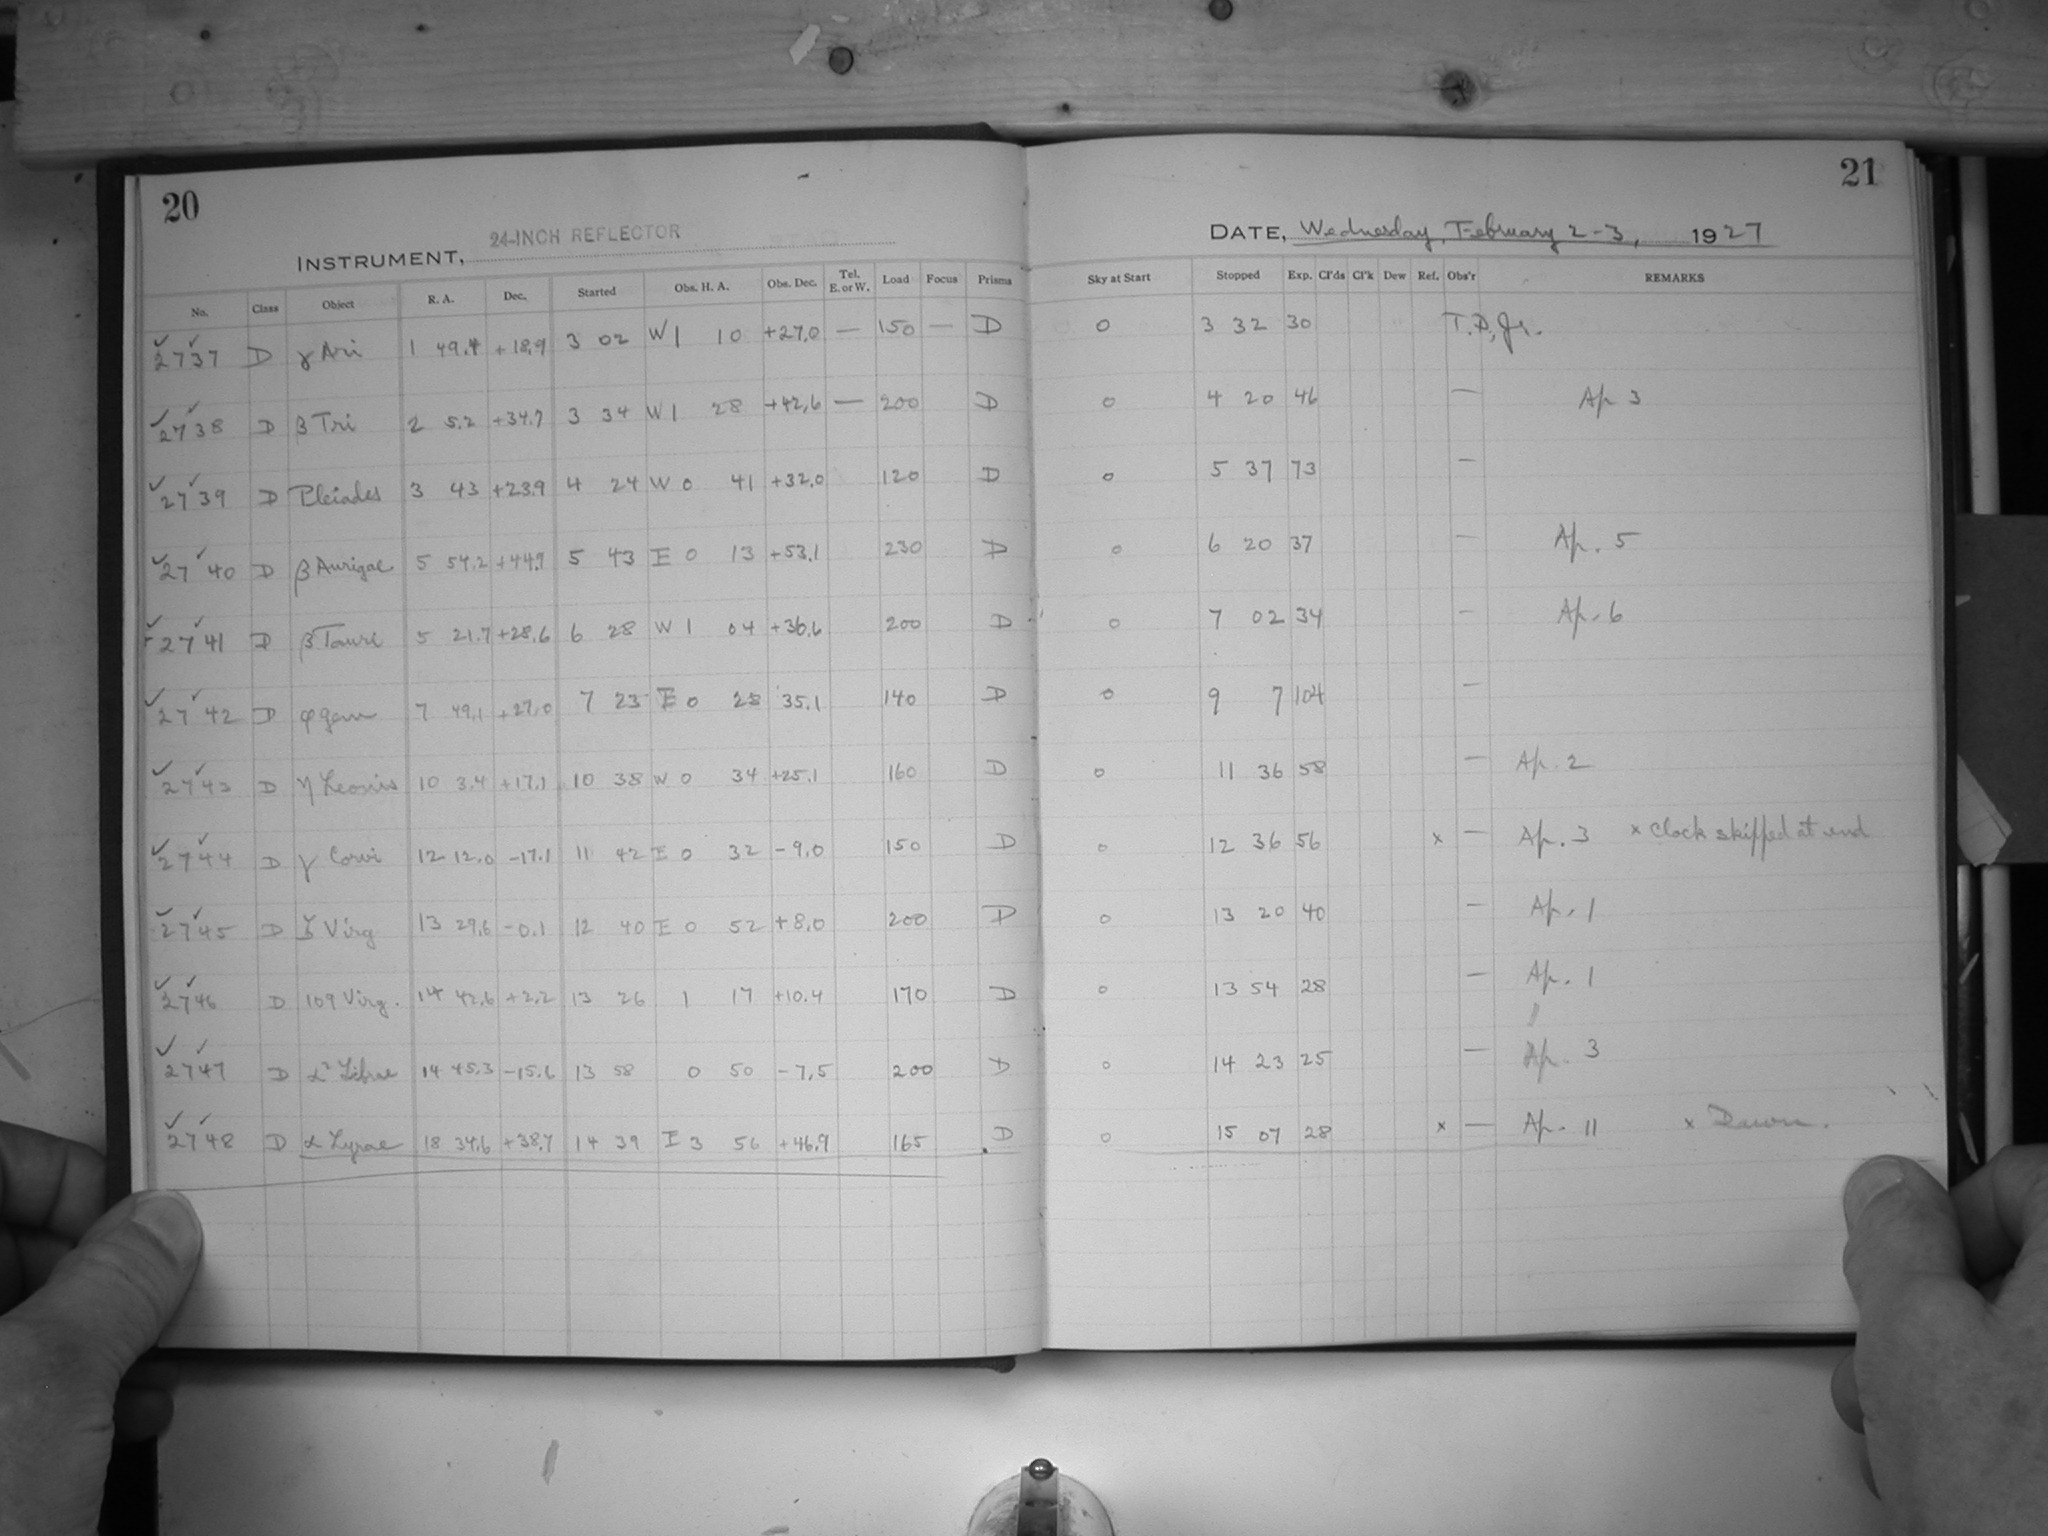 20
INSTRUMENT, 24-INCH REFLECTOR
No. Class Object R. A. Dec. Started Obs. H. A. Obs. Dec. Tel. E. or W. Load Focus Prisms
2737 D γ Ari 1 49.4 +18.9 3 02 W 1 10 +27.0 — 150 — D
2738 D β Tri 2 5.2 +34.7 3 34 W 1 28 +42.6 — 200 D
2739 D Pleiades 3 43 +23.9 4 24 W 0 41 +32.0 120 D
2740 D β Aurigae 5 54.2 +44.9 5 43 E 0 13 +53.1 230 D
2741 D β Tauri 5 21.7 +28.6 6 28 W 1 04 +36.6 200 D
2742 D φ Gem 7 49.1 +27.0 7 23 E 0 28 35.1 140 D
2743 D η Leonis 10 3.4 +17.1 10 38 W 0 34 +25.1 160 D
2744 D γ Corvi 12 12.0 -17.1 11 42 E 0 32 -9.0 150 D
2745 D ζ Virg 13 29.6 -0.1 12 40 E 0 52 +8.0 200 D
2746 D 109 Virg. 14 42.6 +2.2 13 26 1 17 +10.4 170 D
2747 D α² Librae 14 45.3 -15.6 13 58 0 50 -7.5 200 D
2748 D α Lyrae 18 34.6 +38.7 14 39 E 3 56 +46.9 165 D
21
DATE, Wednesday, February 2-3, 1927
Sky at Start Stopped Exp. Cl'ds Cl'k Dew Ref. Obs'r REMARKS
0 3 32 30 T.P., Jr.
0 4 20 46 — Ap 3
0 5 37 73 —
0 6 20 37 — Ap. 5
0 7 02 34 — Ap. 6
0 9 7 104 —
0 11 36 58 — Ap. 2
0 12 36 56 x — Ap. 3 x Clock skipped at end
0 13 20 40 — Ap. 1
0 13 54 28 — Ap. 1
0 14 23 25 — Ap. 3
0 15 07 28 x — Ap. 11 x Dawn.